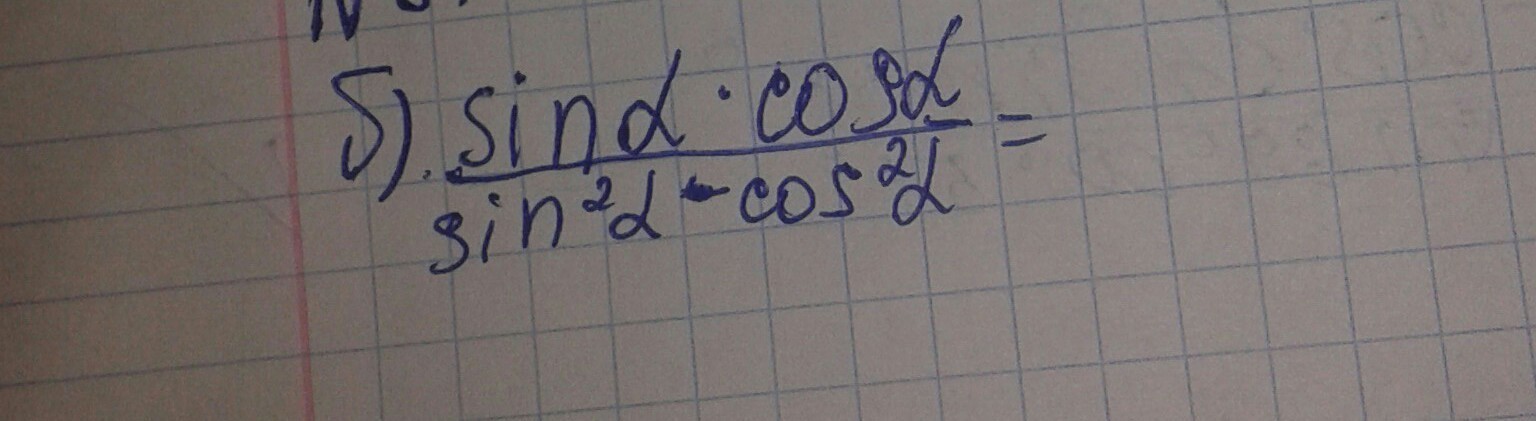 б). sinα · cosα / sin²α - cos²α =